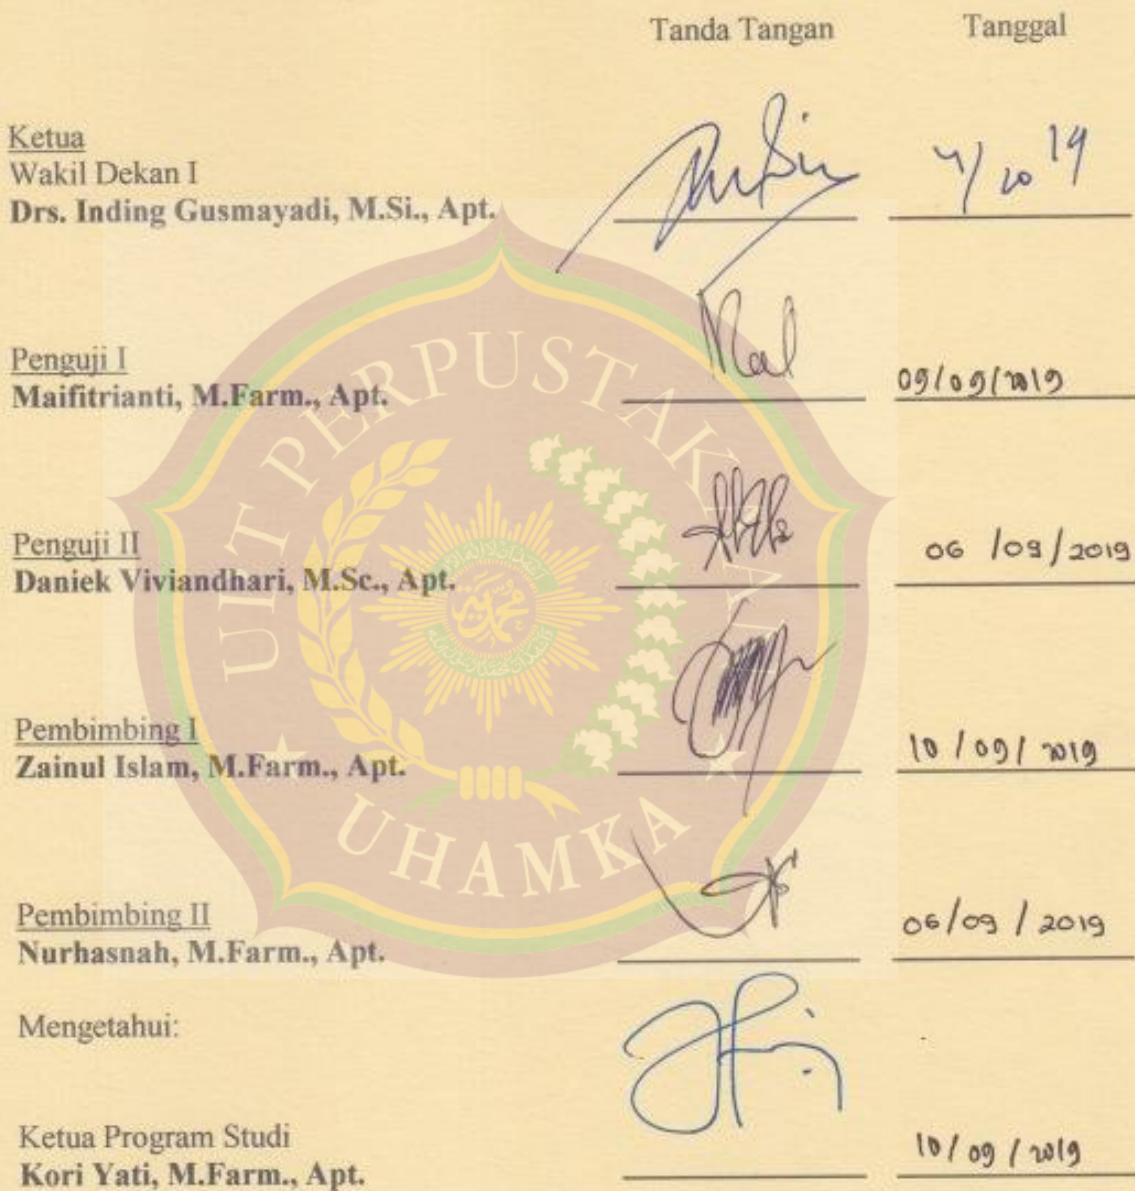 Tanda Tangan Tanggal
Ketua
Wakil Dekan I
Drs. Inding Gusmayadi, M.Si., Apt. /10 19
Penguji I
Maifitrianti, M.Farm., Apt. 09/09/2019
Penguji II
Daniek Viviandhari, M.Sc., Apt. 06/09/2019
Pembimbing I
Zainul Islam, M.Farm., Apt. 10/09/2019
Pembimbing II
Nurhasnah, M.Farm., Apt. 06/09/2019
Mengetahui:
Ketua Program Studi
Kori Yati, M.Farm., Apt. 10/09/2019
UIT PERPUSTAKAAN
UHAMKA